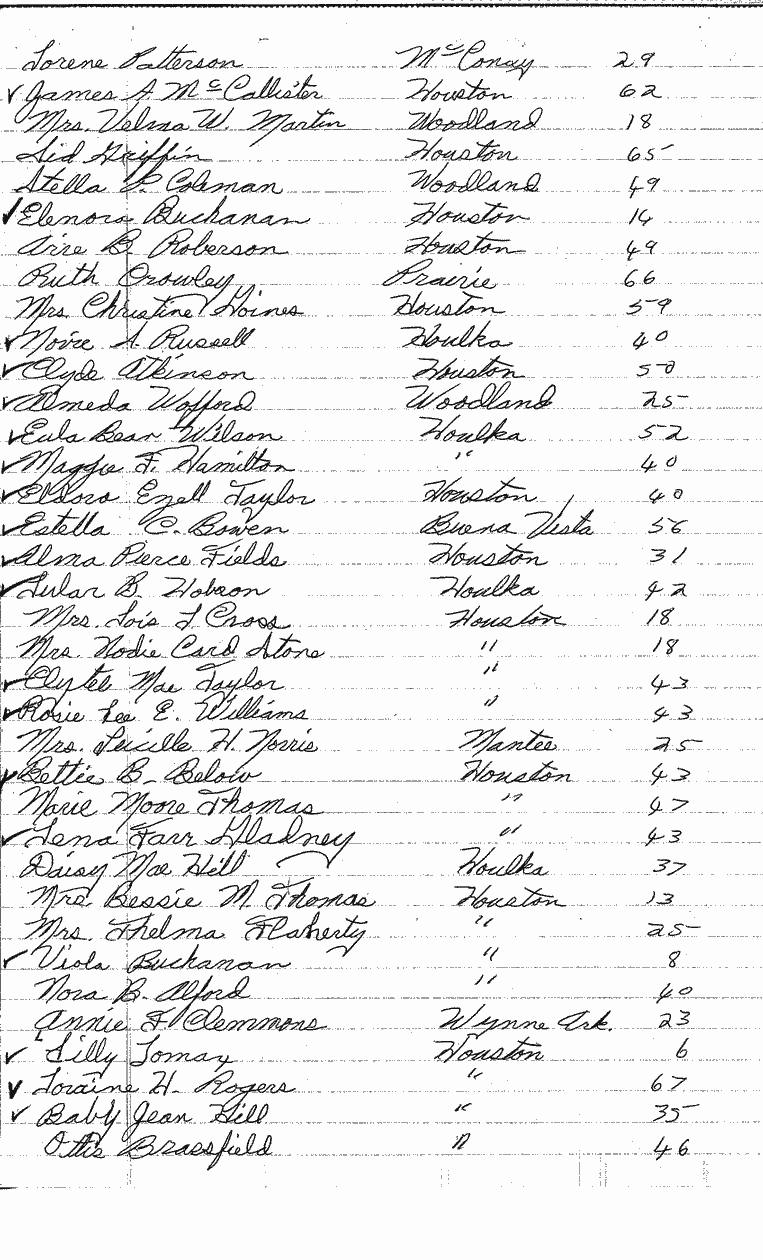 Lorene Patterson McConay 29
✓ James A McCallister Houston 62
Mrs. Velma W. Martin Woodland 18
Sid Griffin Houston 65
Stella P. Coleman Woodland 49
✓ Elenora Buchanan Houston 14
Arie B. Roberson Houston 49
Ruth Crowley Prairie 66
Mrs Christine Hoines Houston 59
✓ Novie A. Russell Houlka 40
✓ Clyde Atkinson Houston 50
✓ Almeda Wofford Woodland 25
✓ Eula Bear Wilson Houlka 52
✓ Maggie F. Hamilton " 40
✓ Eldora Ezell Taylor Houston 40
✓ Estella C. Bowen Buena Vista 56
✓ Alma Pierce Fields Houston 31
✓ Lular B. Hobson Houlka 42
Mrs. Lois L Cross Houston 18
Mrs. Nodie Card Stone " 18
✓ Clytel Mae Taylor " 43
✓ Rosie Lee E. Williams " 43
Mrs. Leicille H. Norris Mantee 25
✓ Bettie B. Below Houston 43
Marie Moore Thomas " 47
✓ Lena Farr Gladney " 43
Daisy Mae Hill Houlka 37
Mrs. Bessie M. Thomas Houston 13
Mrs. Thelma Flaherty " 25
✓ Viola Buchanan " 8
Nora B. Alford " 40
Annie F. Clemmons Wynne Ark. 23
✓ Lilly Tomay Houston 6
✓ Loraine H. Rogers " 67
✓ Baby Jean Hill " 35
Ottis Brassfield " 46